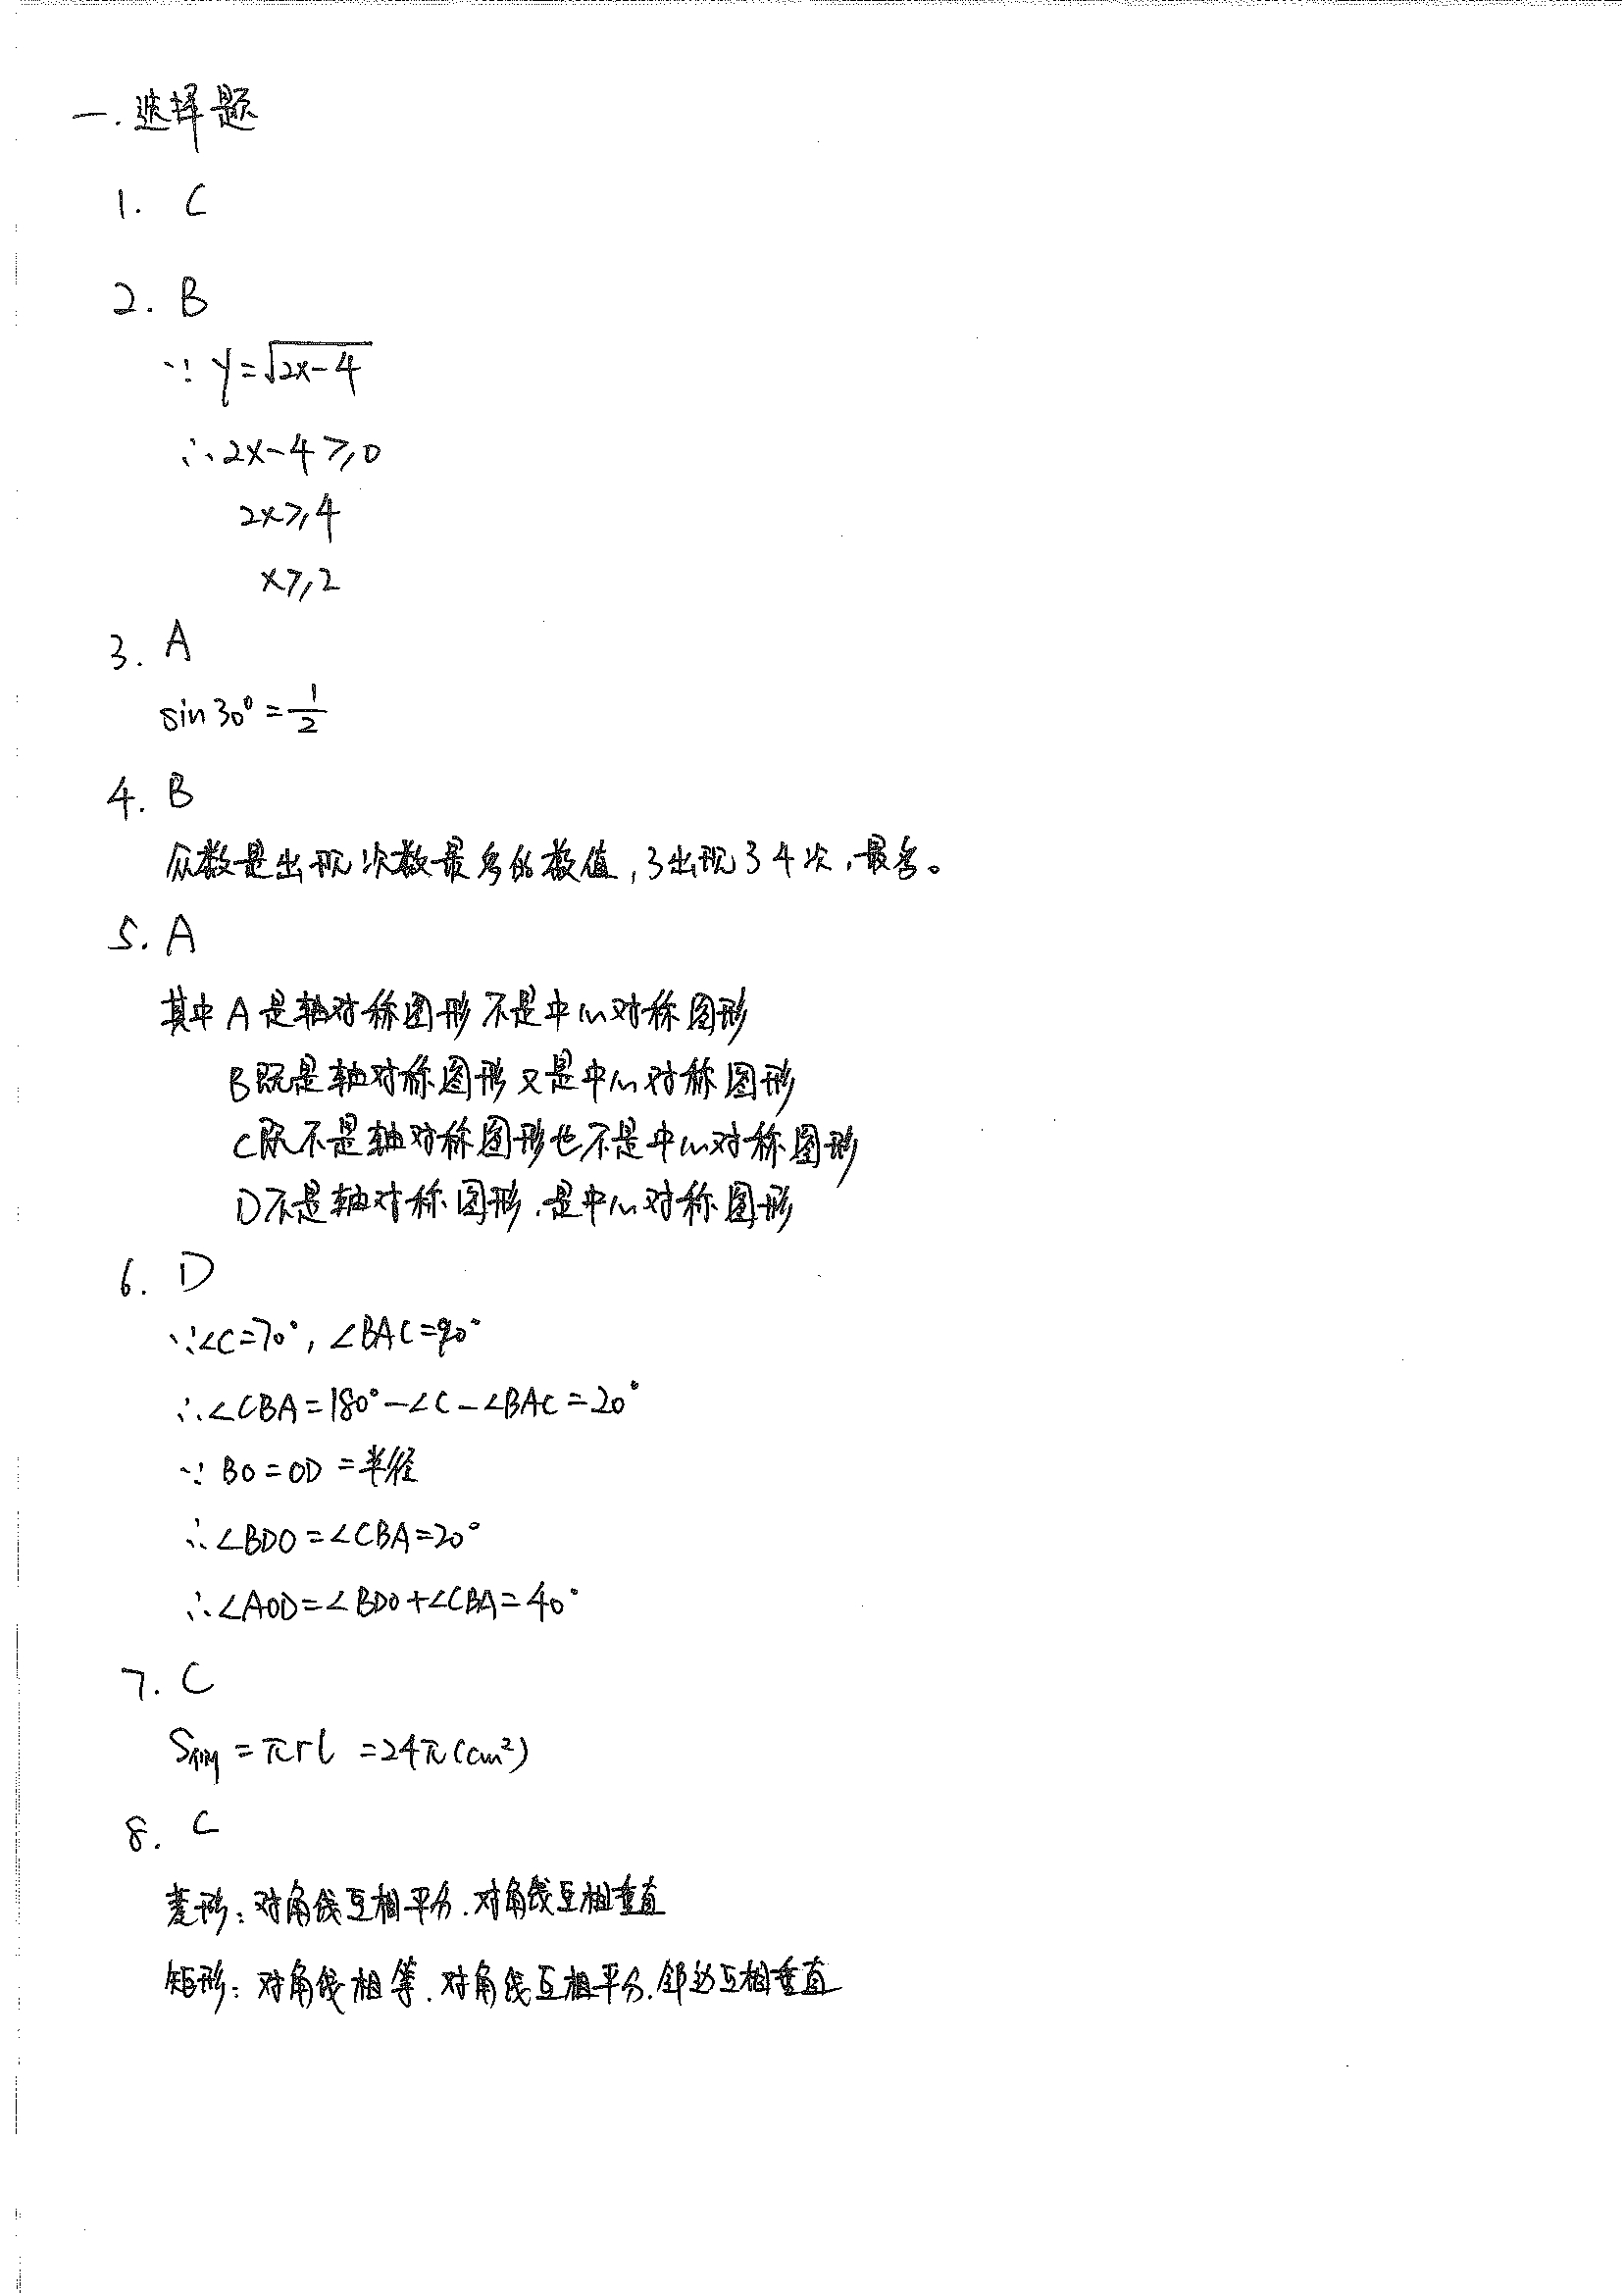 一.选择题
1. C
2. B
∵ y=√(2x-4)
∴ 2x-4≥0
2x≥4
x≥2
3. A
sin30°=1/2
4. B
众数是出现次数最多的数值,3出现了4次,最多。
5. A
其中A是轴对称图形不是中心对称图形
B既是轴对称图形又是中心对称图形
C既不是轴对称图形也不是中心对称图形
D不是轴对称图形.是中心对称图形
6. D
∵∠C=70°,∠BAC=90°
∴∠CBA=180°-∠C-∠BAC=20°
∵ BO=OD=半径
∴∠BDO=∠CBA=20°
∴∠AOD=∠BDO+∠CBA=40°
7. C
S侧=πrl=24π(cm²)
8. C
菱形:对角线互相平分.对角线互相垂直
矩形:对角线相等.对角线互相平分.邻边互相垂直